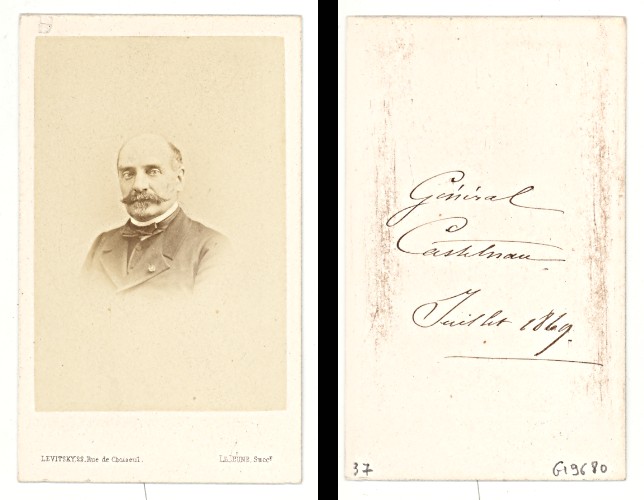 LEVITSKY, 22, Rue de Choiseul.
LeJEUNE, Succr
Général
Castelnau
Juillet 1869.
37
G19680